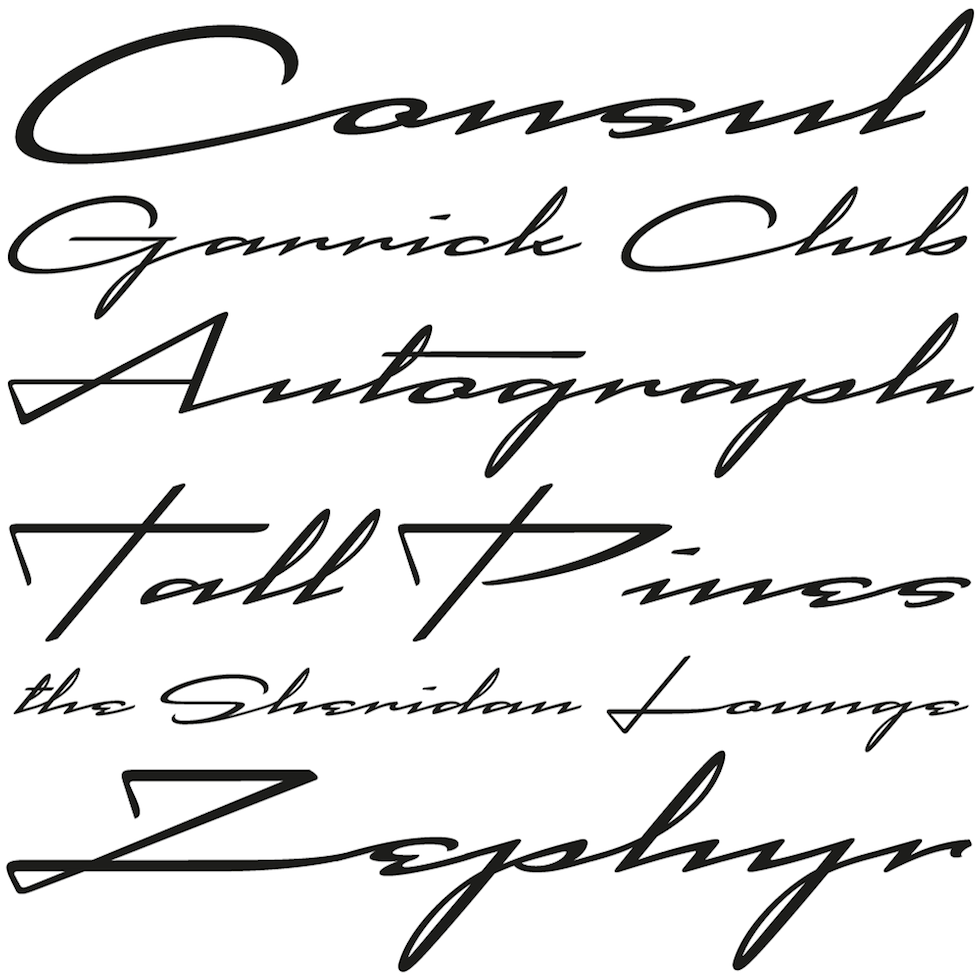 Consul
Garrick Club
Autograph
Tall Pines
the Sheridan Lounge
Zephyr